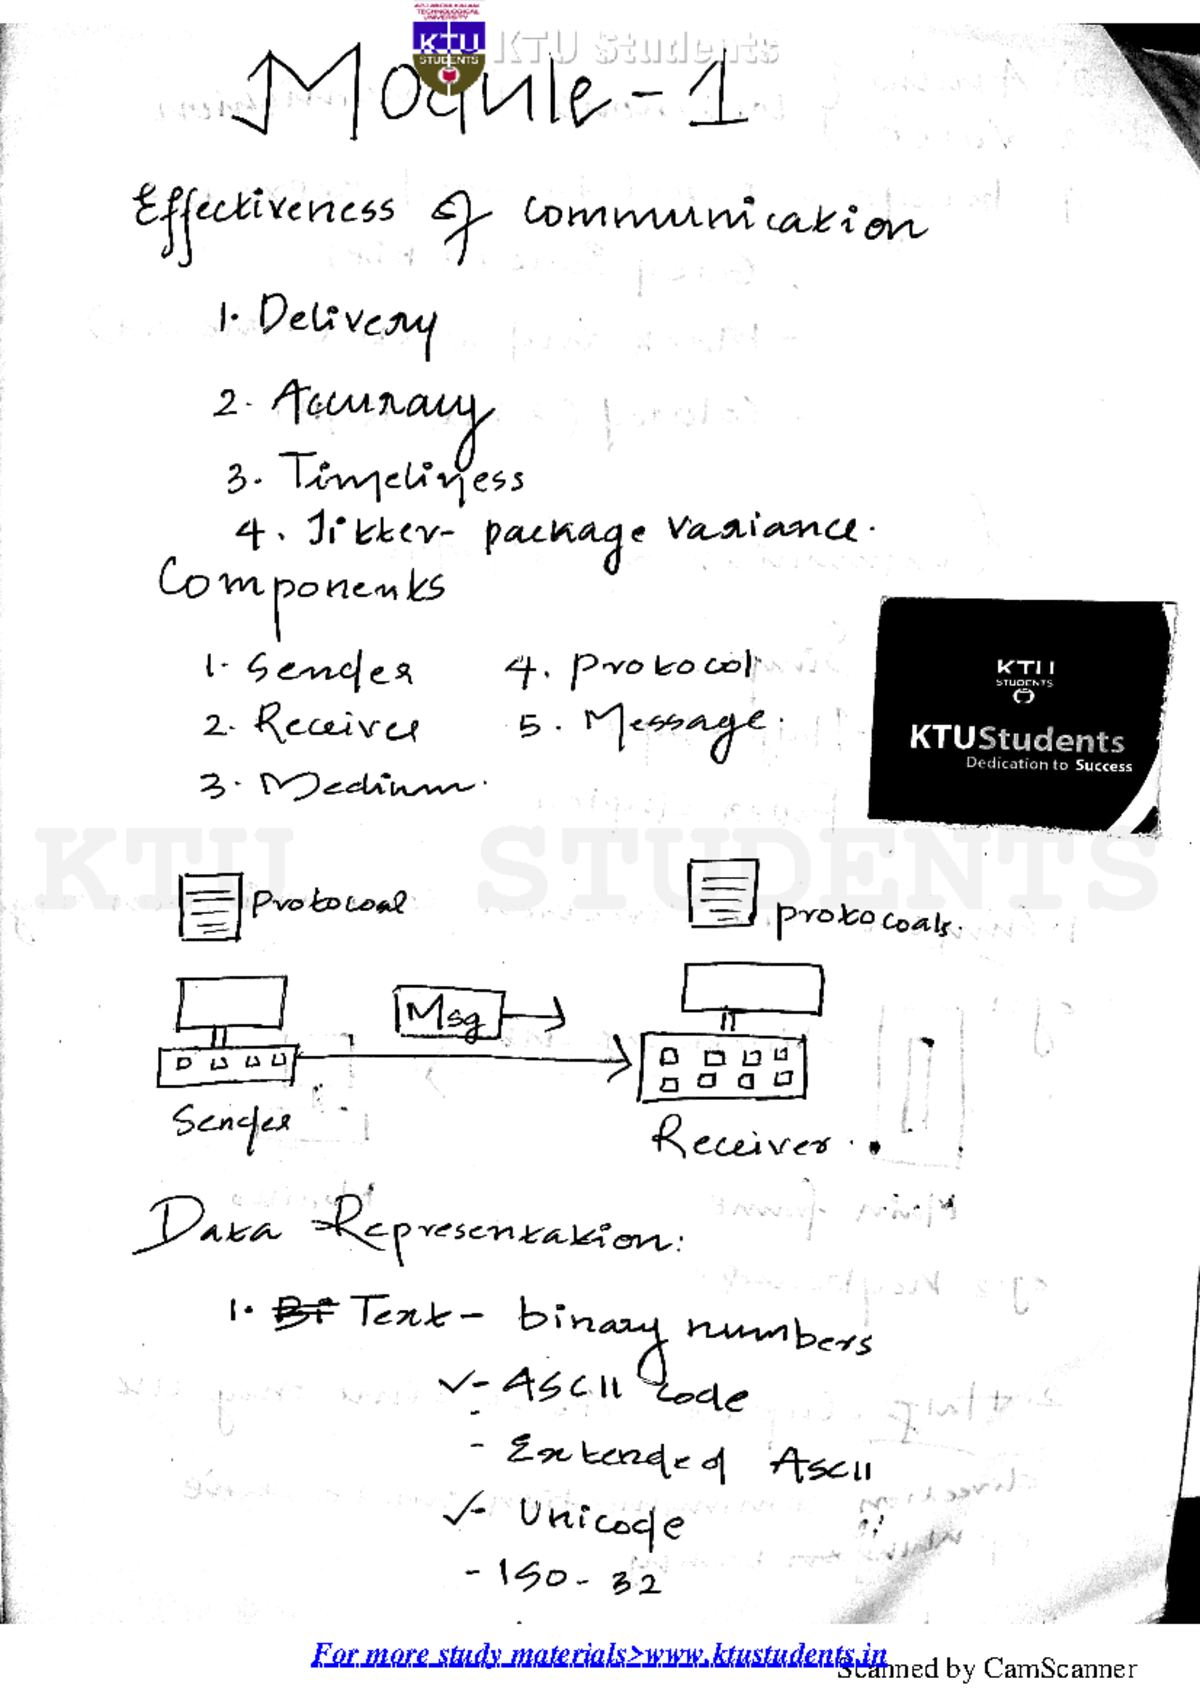 APJ ABDUL KALAM
TECHNOLOGICAL
UNIVERSITY
KTU
STUDENTS
KTU Students
Module - 1
Effectiveness of communication
1. Delivery
2. Accuracy
3. Timeliness
4. Jitter- package variance.
Components
1. Sender 4. protocol
2. Receiver 5. Message.
3. Medium.
KTU
STUDENTS
KTUStudents
Dedication to Success
KTU STUDENTS
Protocoal
protocoals.
Msg
Sender
Receiver.
Data Representation:
1. Bi Text - binary numbers
✓- ASCII code
- Extended ASCII
✓- Unicode
- ISO - 32
For more study materials>www.ktustudents.in
Scanned by CamScanner